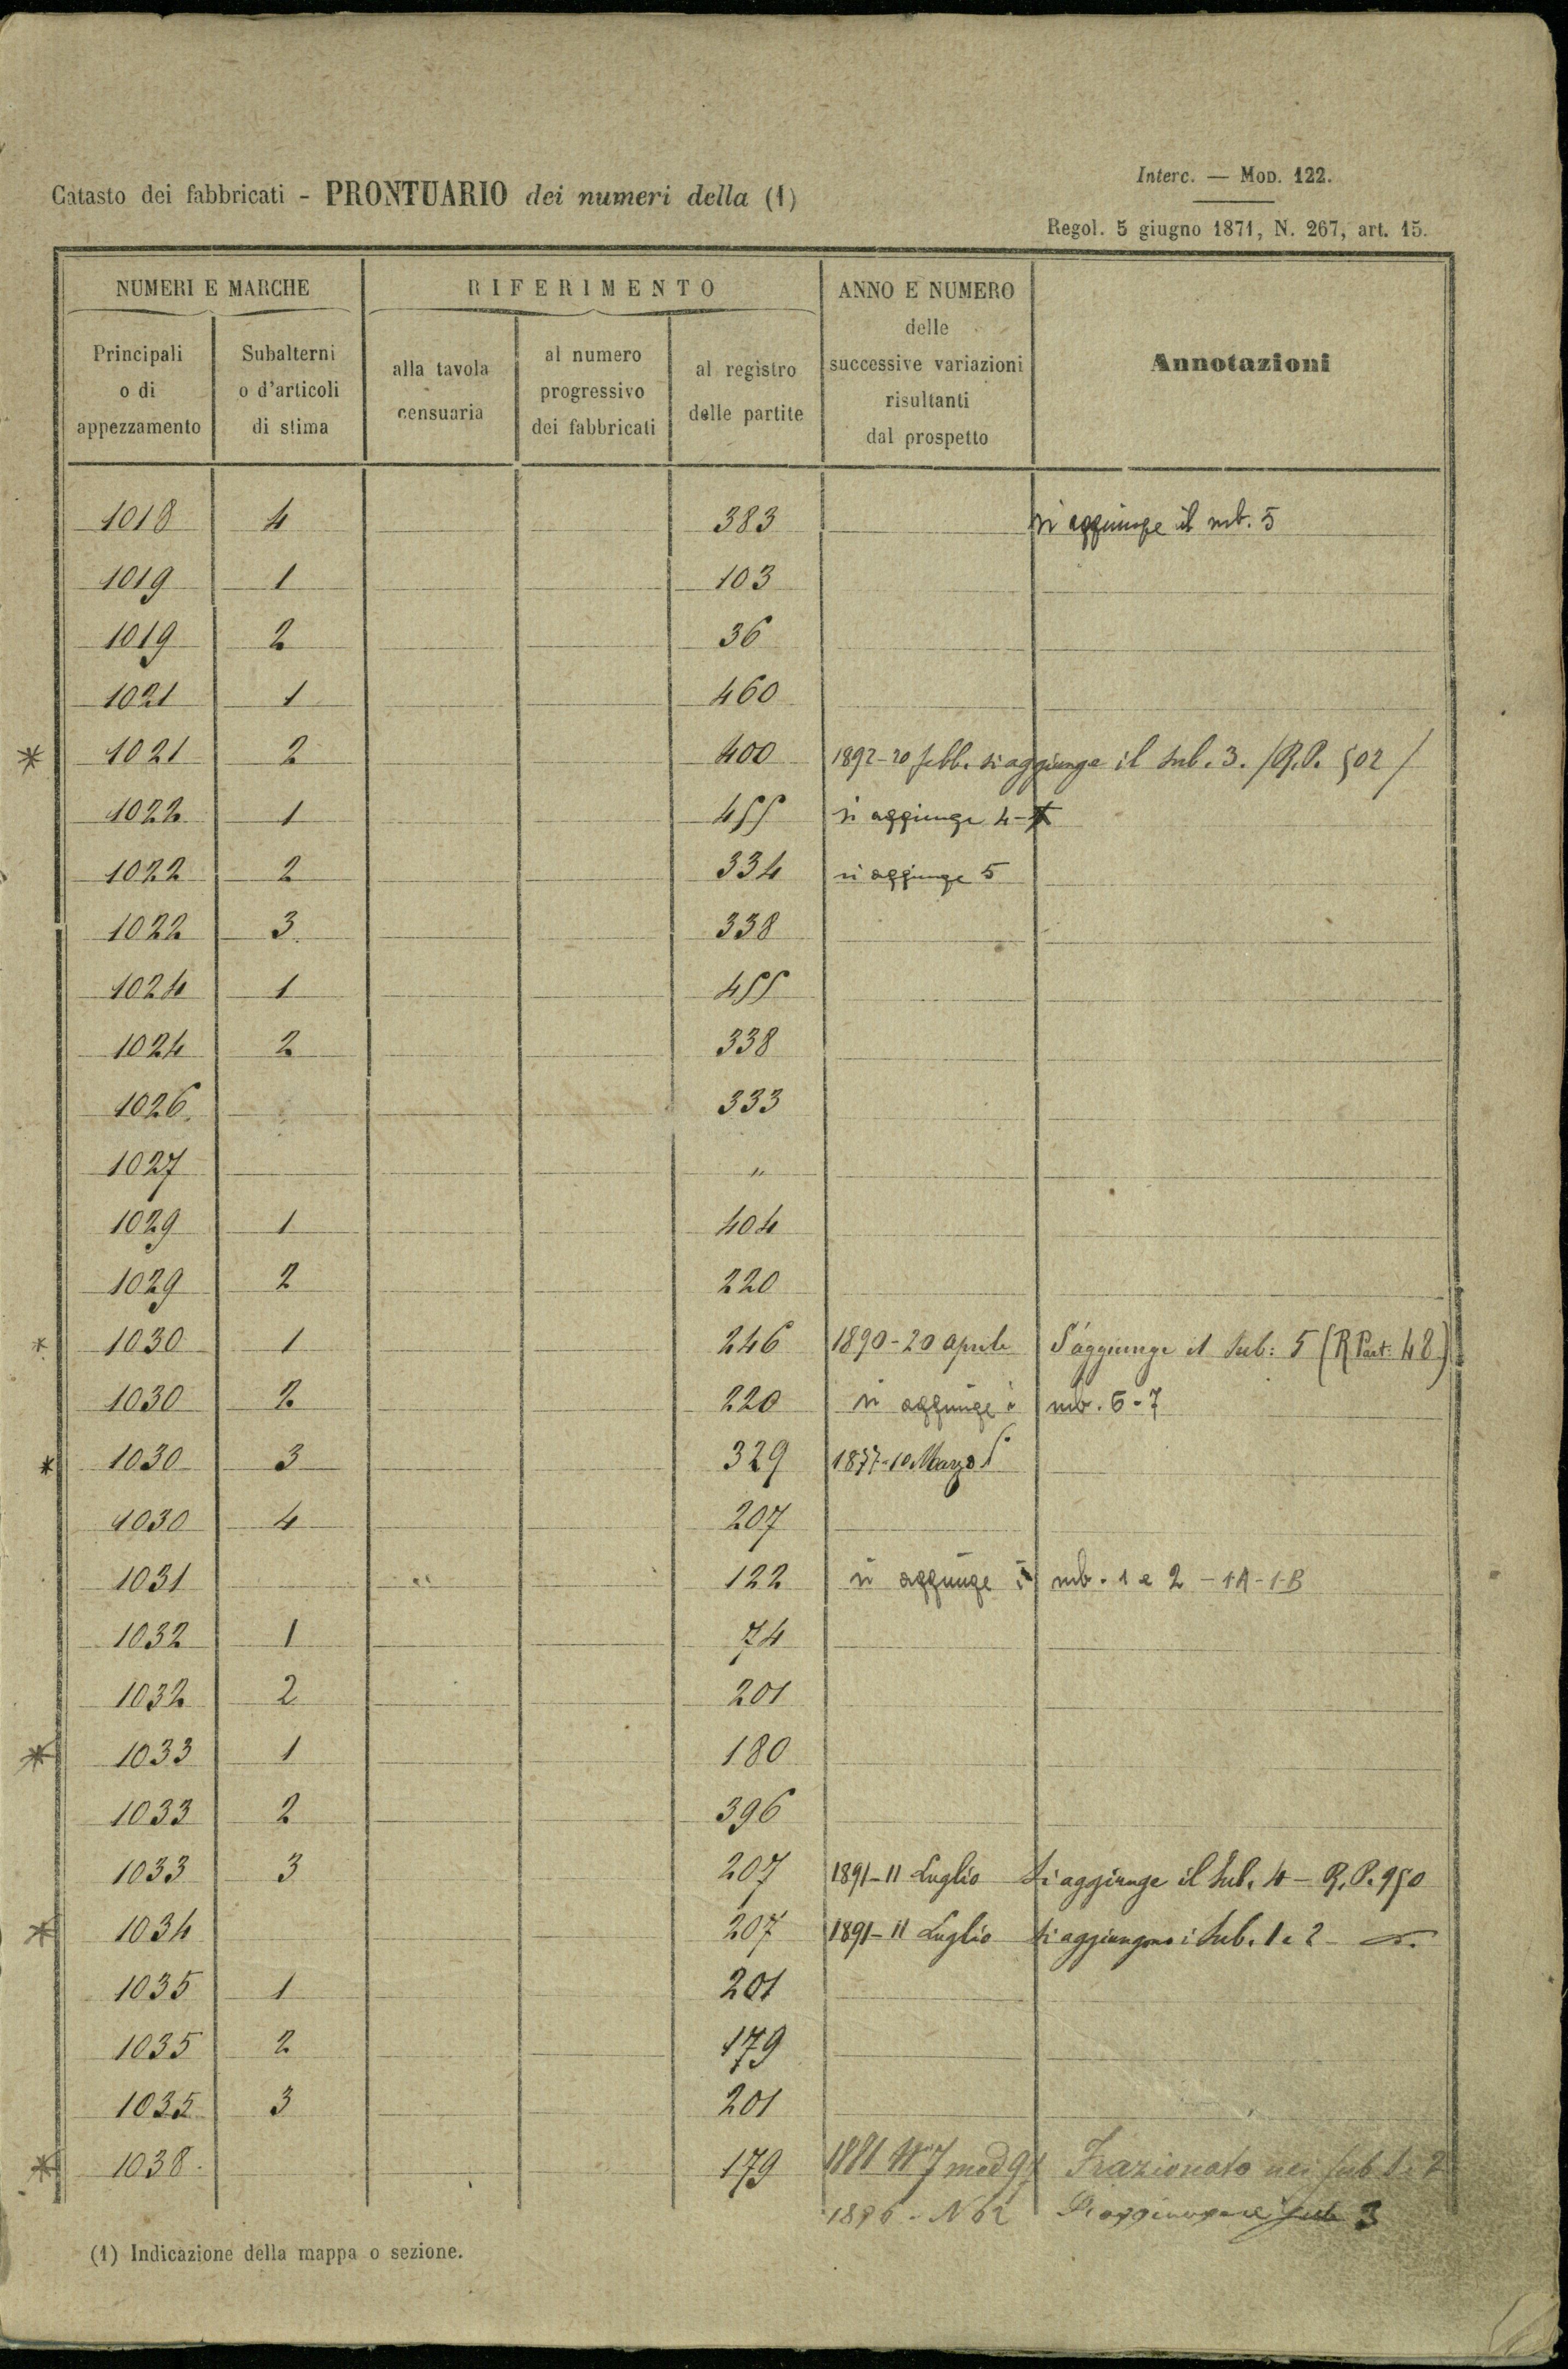 Catasto dei fabbricati - PRONTUARIO dei numeri della (1)
Interc. — Mod. 122.
Regol. 5 giugno 1871, N. 267, art. 15.
NUMERI E MARCHE RIFERIMENTO ANNO E NUMERO delle successive variazioni risultanti dal prospetto Annotazioni
Principali o di appezzamento Subalterni o d'articoli di stima alla tavola censuaria al numero progressivo dei fabbricati al registro delle partite
1018 4 383 si aggiunge il sub. 5
1019 1 103
1019 2 36
1021 1 460
* 1021 2 400 1892-20 febb. si aggiunge il sub. 3. /R.P. 502/
1022 1 455 si aggiunge 4-
1022 2 334 si aggiunge 5
1022 3 338
1024 1 455
1024 2 338
1026 333
1027 "
1029 1 404
1029 2 220
* 1030 1 246 1890-20 aprile S'aggiunge il Sub: 5 (R Part: 48)
1030 2 220 si aggiunge i sub. 6-7
* 1030 3 329 1877-10 Marzo
1030 4 207
1031 122 si aggiunge i sub. 1 e 2 - 1A-1B
1032 1 74
1032 2 201
* 1033 1 180
1033 2 396
1033 3 207 1891-11 Luglio Si aggiunge il Sub. 4 - R.P. 950
* 1034 207 1891-11 Luglio Si aggiungono i Sub. 1 e 2
1035 1 201
1035 2 179
1035 3 201
* 1038 179 1881 7 mod 97 Frazionato nei sub 1. 2
1896 - N 62 sub 3
(1) Indicazione della mappa o sezione.